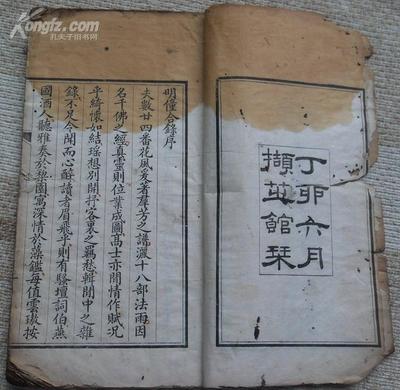 Kongfz.com
孔夫子旧书网
丁卯六月
擷芷館栞
明僮合錄序
夫數廿四番花風爰著羣芳之譜灑十八部法雨因
名千佛之經真靈則位業成圖高士亦閒情作賦况
乎綺懷如結瑶想别開抒客裏之羈愁輯閒中之雜
錄不足令聞而心醉讀者眉飛乎則有騷壇詞伯燕
國酒人聽雅奏於棃園寓深情於藻鑑每值雲璈按